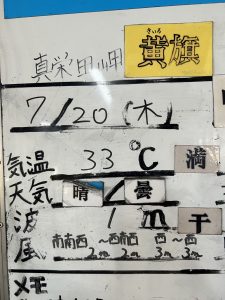 真栄田岬 黄旗
きいろ
7/20(木)
気温 33℃ 満
天気 晴/曇
波 1m 干
風 南南西〜西南西 西〜西
2m 2m 3m 3m
メモ